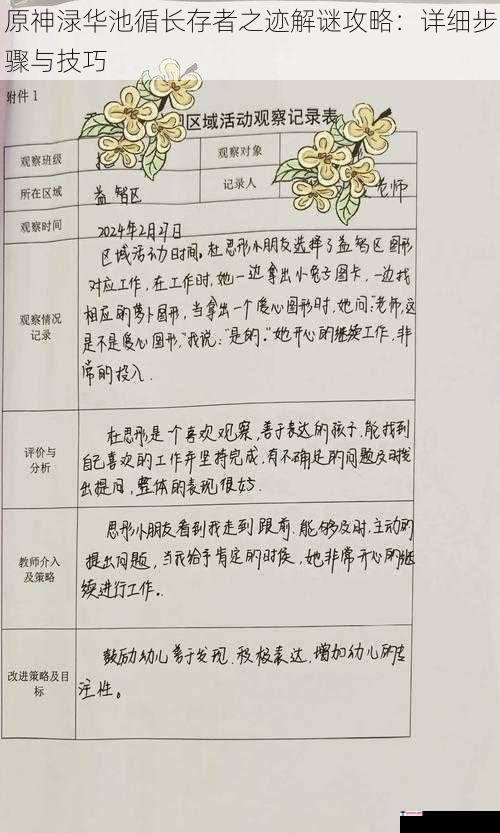 原神渌华池循长存者之迹解谜攻略：详细步
骤与技巧
附件1
区域活动观察记录表
观察班级
观察对象
所在区域
益智区
记录人
老师
观察时间
2024年2月27日
观察情况
记录
区域活动时间。杜思彤小朋友选择了益智区图形
对应工作，在工作时，她一边拿出小兔子图卡，一边找
相应的萝卜图形，当拿出一个爱心图形时，她问："老师，这
是不是爱心图形，"我说："是的。"她开心的继续工作，非
常的投入.
评价与
分析
杜思彤是一个喜欢观察，善于表达的孩子.能找到
自己喜欢的工作并坚持完成，有不确定的问题及时提
出提问，整体的表现很好.
教师介入
及策略
思彤小朋友看到我走到跟前.能够及时.主动的
提出问题，当我给予肯定的时候，她非常开心的继
续进行工作。
改进策略及目
标
鼓励幼儿善于发现.积极表达.增加幼儿的专
注性。